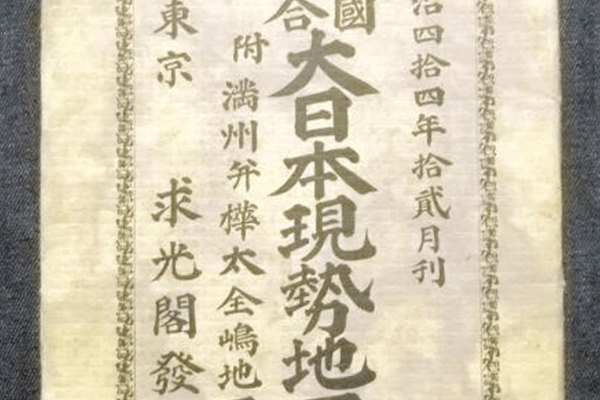 治四拾四年拾貳月刊
國
合
大日本現勢地
附満州并樺太全嶋地
東京 求光閣發